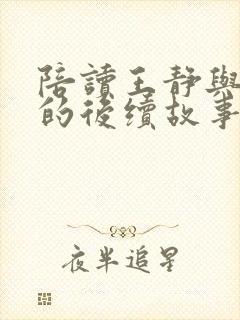 陪讀王靜與
的後續故事
夜半追星